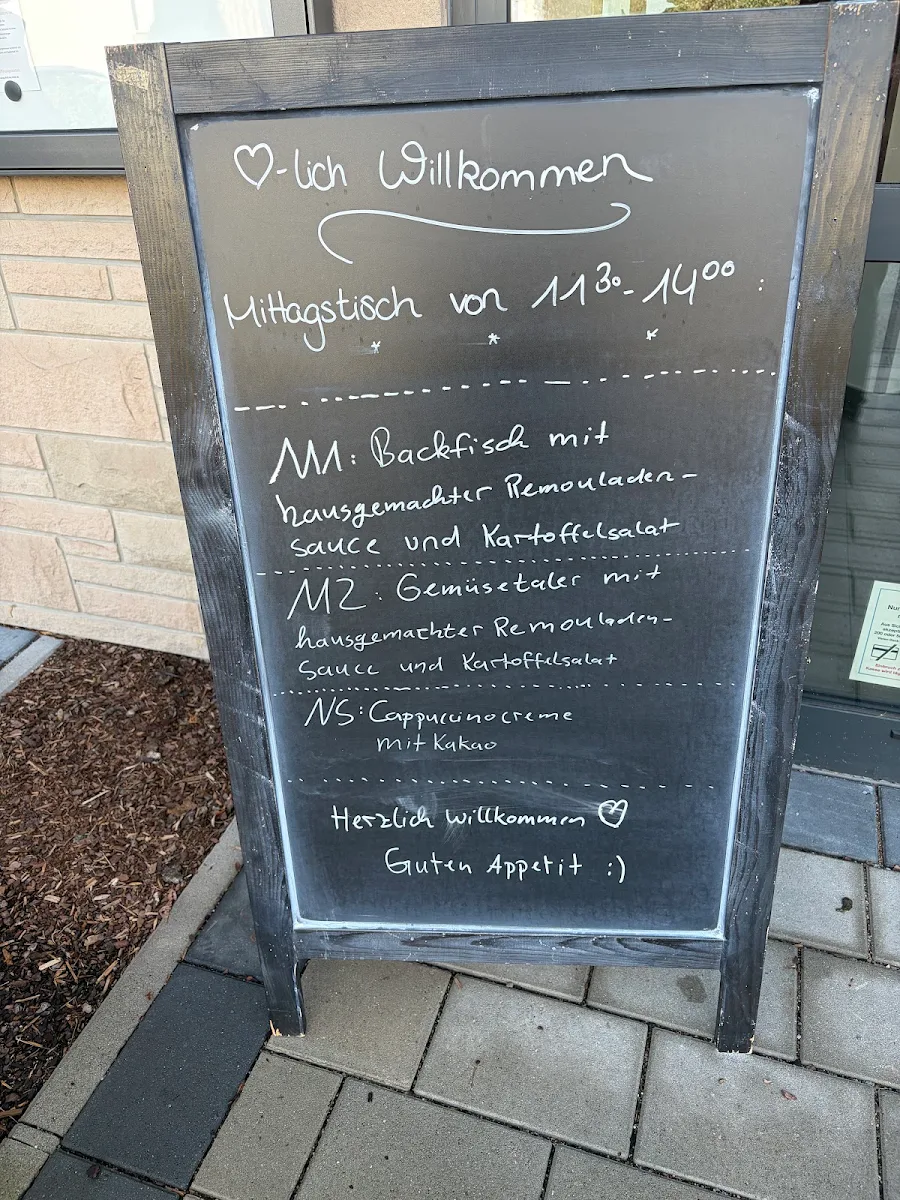 ♡-lich Willkommen
Mittagstisch von 11³⁰-14⁰⁰ :
* * *
M1: Backfisch mit
hausgemachter Remouladen-
sauce und Kartoffelsalat
M2: Gemüsetaler mit
hausgemachter Remouladen-
sauce und Kartoffelsalat
NS: Cappuccinocreme
mit Kakao
Herzlich willkommen ♡
Guten Appetit :)